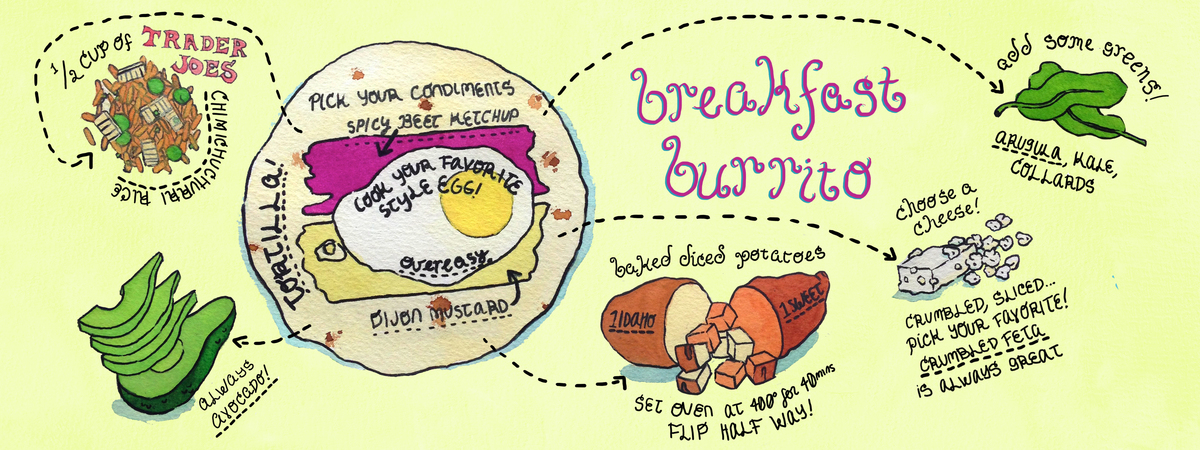 1/2 CUP OF TRADER
JOES
CHIMICHUCHURRI RICE
TORTILLA!
PICK YOUR CONDIMENTS
SPICY BEET KETCHUP
COOK YOUR FAVORITE
STYLE EGG!
overeasy
DIJON MUSTARD
always
avocado!
breakfast
burrito
baked diced potatoes
1 IDAHO
1 SWEET
SET OVEN AT 400° for 40mins
FLIP HALF WAY!
add some greens!
ARUGULA, KALE,
COLLARDS
choose a
cheese!
CRUMBLED, SLICED...
PICK YOUR FAVORITE!
CRUMBLED FETA
is ALWAYS GREAT